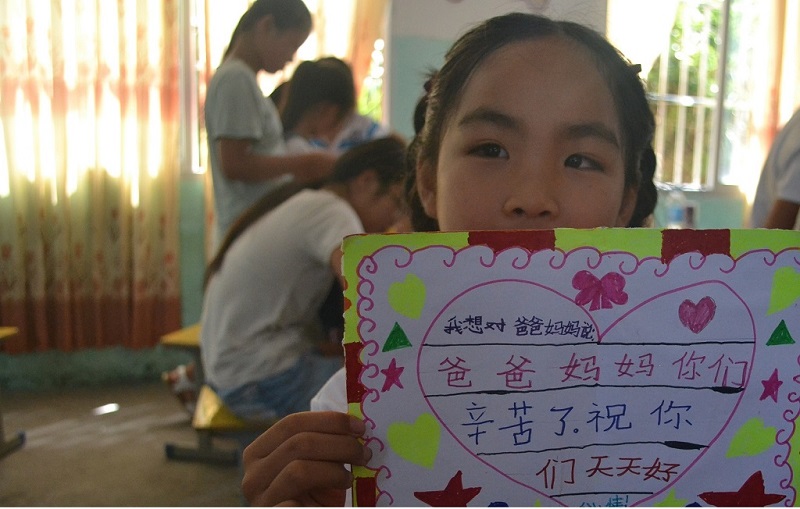 我想对爸爸妈妈说
爸爸妈妈你们
辛苦了.祝你
们天天好